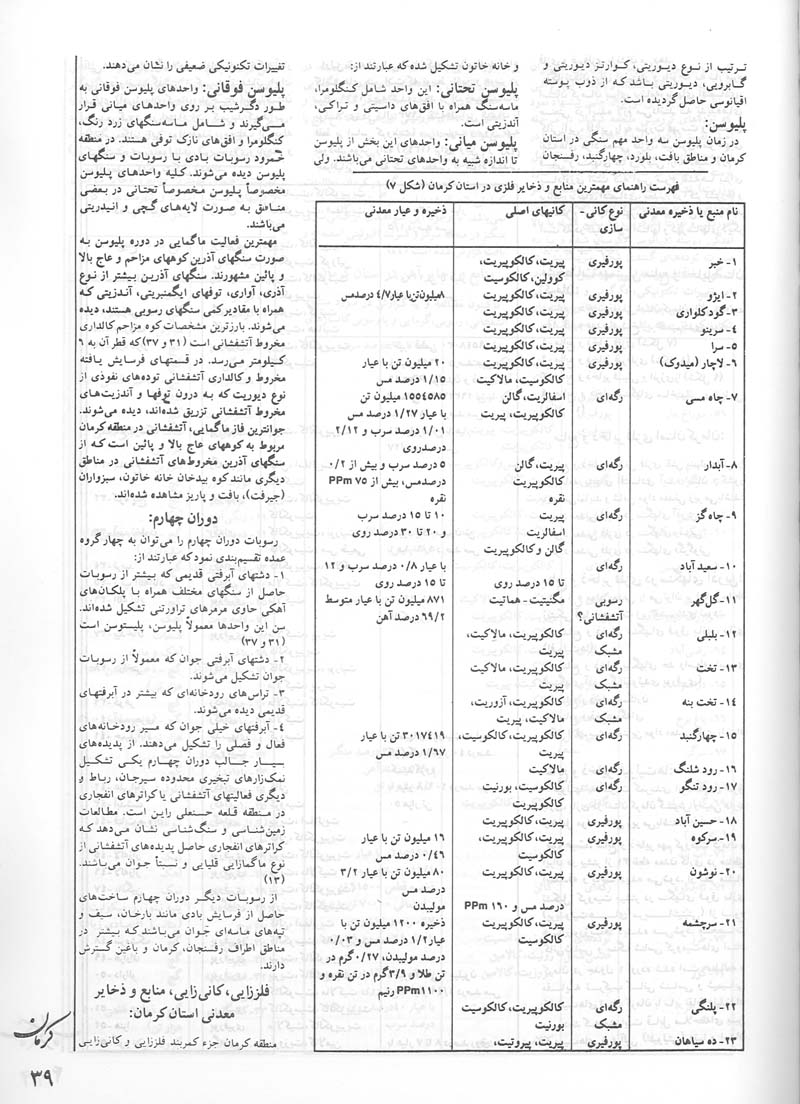 ترتیب از نوع دیوریتی، کوارتز دیوریتی و
گابرویی، دیوریتی باشد که از ذوب پوسته
اقیانوسی حاصل گردیده است.
پلیوسن:
در زمان پلیوسن سه واحد مهم سنگی در استان
کرمان و مناطق بافت، بلورد، چهارگنبد، رفسنجان
و خانه خاتون تشکیل شده که عبارتند از:
پلیوسن تحتانی: این واحد شامل کنگلومرا،
ماسه‌سنگ همراه با افق‌های داسیتی و تراکی،
آندزیتی است.
پلیوسن میانی: واحدهای این بخش از پلیوسن
تا اندازه شبیه به واحدهای تحتانی می‌باشند. ولی
تغییرات تکتونیکی ضعیفی را نشان می‌دهند.
پلیوسن فوقانی: واحدهای پلیوسن فوقانی به
طور دگرشیب بر روی واحدهای میانی قرار
می‌گیرند و شامل ماسه‌سنگهای زرد رنگ،
کنگلومرا و افق‌های نازک توفی هستند. در منطقه
رسوبات بادی با رسوبات و سنگهای
پلیوسن دیده می‌شوند. کلیه واحدهای پلیوسن
مخصوصاً پلیوسن مخصوصاً تحتانی در بعضی
مناطق به صورت لایه‌های گچی و انیدریتی
می‌باشند.
مهمترین فعالیت ماگمایی در دوره پلیوسن به
صورت سنگهای آذرین کوههای مزاحم و عاج بالا
و پائین مشهورند. سنگهای آذرین بیشتر از نوع
آذری، آواری، توفهای ایگنمبریتی، آندزیتی که
همراه با مقادیر کمی سنگهای رسوبی هستند، دیده
می‌شوند. بارزترین مشخصات کوه مزاحم کالداری
مخروط آتشفشانی است (۳۱ و ۳۷) که قطر آن به ۶
کیلومتر می‌رسد. در قسمتهای فرسایش یافته
مخروط و کالداری آتشفشانی توده‌های نفوذی از
نوع دیوریت که به درون توفها و آندزیت‌های
مخروط آتشفشانی تزریق شده‌اند، دیده می‌شوند.
جوانترین فاز ماگمایی، آتشفشانی در منطقه کرمان
مربوط به کوههای عاج بالا و پائین است که از
سنگهای آذرین مخروط‌های آتشفشانی در مناطق
دیگری مانند کوه بیدخان خانه خاتون، سبزواران
(جیرفت)، بافت و پاریز مشاهده شده‌اند.
دوران چهارم:
رسوبات دوران چهارم را می‌توان به چهار گروه
عمده تقسیم‌بندی نمود که عبارتند از:
۱- دشتهای آبرفتی قدیمی که بیشتر از رسوبات
حاصل از سنگهای مختلف همراه با پلکان‌های
آهکی حاوی مرمرهای تراورتنی تشکیل شده‌اند.
سن این واحدها معمولاً پلیوسن، پلیستوسن است
(۳۱ و ۳۷)
۲- دشتهای آبرفتی جوان که معمولاً از رسوبات
جوان تشکیل می‌شوند.
۳- تراس‌های رودخانه‌ای که بیشتر در آبرفتهای
قدیمی دیده می‌شوند.
۴- آبرفتهای خیلی جوان که مسیر رودخانه‌های
فعال و فصلی را تشکیل می‌دهند. از پدیده‌های
بسیار جالب دوران چهارم یکی تشکیل
نمک‌زارهای تبخیری محدوده سیرجان، رباط و
دیگری فعالیتهای آتشفشانی یا کراترهای انفجاری
در منطقه قلعه حسنعلی راین است. مطالعات
زمین‌شناسی و سنگ‌شناسی نشان می‌دهد که
کراترهای انفجاری حاصل پدیده‌های آتشفشانی از
نوع ماگمازایی قلیایی و نسبتاً جوان می‌باشند.
(۱۳)
از رسوبات دیگر دوران چهارم ساخت‌های
حاصل از فرسایش بادی مانند بارخان، سیف و
تپه‌های ماسه‌ای جوان می‌باشند که بیشتر در
مناطق اطراف رفسنجان، کرمان و باغین گسترش
دارند.
فلززایی، کانی‌زایی، منابع و ذخایر
معدنی استان کرمان:
منطقه کرمان جزء کمربند فلززایی و کانی‌زایی
فهرست راهنمای مهمترین منابع و ذخایر فلزی در استان کرمان (شکل ۷)
نام منبع یا ذخیره معدنی نوع کانی- کانیهای اصلی ذخیره و عیار معدنی
سازی
۱- خبر پورفیری پیریت، کالکوپیریت،
کوولین، کالکوسیت
۲- ایژو پورفیری پیریت، کالکوپیریت ۸میلیون‌تن‌با عیار ۴/۷ درصدمس
۳- گود کلواری پورفیری پیریت، کالکوپیریت
۴- سرینو پورفیری پیریت، کالکوپیریت
۵- سرا پورفیری پیریت، کالکوپیریت
۶- لاچار (میدوک) پورفیری پیریت، کالکوپیریت ۲۰ میلیون تن با عیار
کالکوسیت، مالاکیت ۱/۱۵ درصد مس
۷- چاه مسی رگه‌ای اسفالریت، گالن ۱۵۵۴۵۸۵ میلیون تن
کالکوپیریت، پیریت با عیار ۱/۲۷ درصد مس
۱/۰۱ درصد سرب و ۲/۱۲
درصدروی
۸- آبدار رگه‌ای پیریت، گالن ۵ درصد سرب و بیش از ۰/۲
کالکوپیریت درصدمس، بیش از ۷۵ PPm
نقره نقره
۹- چاه گز رگه‌ای پیریت ۱۰ تا ۱۵ درصد سرب
اسفالریت و ۲۰ تا ۳۰ درصد روی
گالن و کالکوپیریت
۱۰- سعید آباد رگه‌ای با عیار ۰/۸ درصد سرب و ۱۲
تا ۱۵ درصد روی تا ۱۵ درصد روی
۱۱- گل‌گهر رسوبی مگنیتیت - هماتیت ۸۷۱ میلیون تن با عیار متوسط
آتشفشانی؟ ۶۹/۲ درصد آهن
۱۲- بلبلی رگه‌ای کالکوپیریت، مالاکیت،
مشبک پیریت
۱۳- تخت رگه‌ای کالکوپیریت، مالاکیت
مشبک پیریت
۱۴- تخت بنه رگه‌ای کالکوپیریت، آزوریت،
مشبک مالاکیت، پیریت
۱۵- چهارگنبد رگه‌ای کالکوپیریت، کالکوسیت، ۳۰۱۷۴۱۹ تن با عیار
پیریت ۱/۶۷ درصد مس
۱۶- رود شلنگ رگه‌ای مالاکیت
۱۷- رود تنگو رگه‌ای کالکوسیت، بورنیت
کالکوپیریت
۱۸- حسین آباد پورفیری پیریت، کالکوپیریت
۱۹- سرکوه پورفیری پیریت، کالکوپیریت، ۱۶ میلیون تن با عیار
کالکوسیت ۰/۴۶ درصد مس
۲۰- نوشون پورفیری پیریت، کالکوپیریت ۸۰ میلیون تن با عیار ۳/۲
درصد مس
درصد مس و ۱۶۰ PPm مولیبدن
۲۱- سرچشمه پورفیری پیریت، کالکوپیریت، ذخیره ۱۲۰۰ میلیون تن با
کالکوسیت عیار ۱/۲ درصد مس و ۰/۰۳
درصد مولیبدن، ۰/۲۷ گرم در
تن طلا و ۳/۹ گرم در تن نقره و
۱۱۰۰PPm رنیم
۲۲- پلنگی رگه‌ای کالکوپیریت، کالکوسیت
مشبک بورنیت
۲۳- ده سیاهان پورفیری پیریت، پیروتیت،
کرمان
۳۹